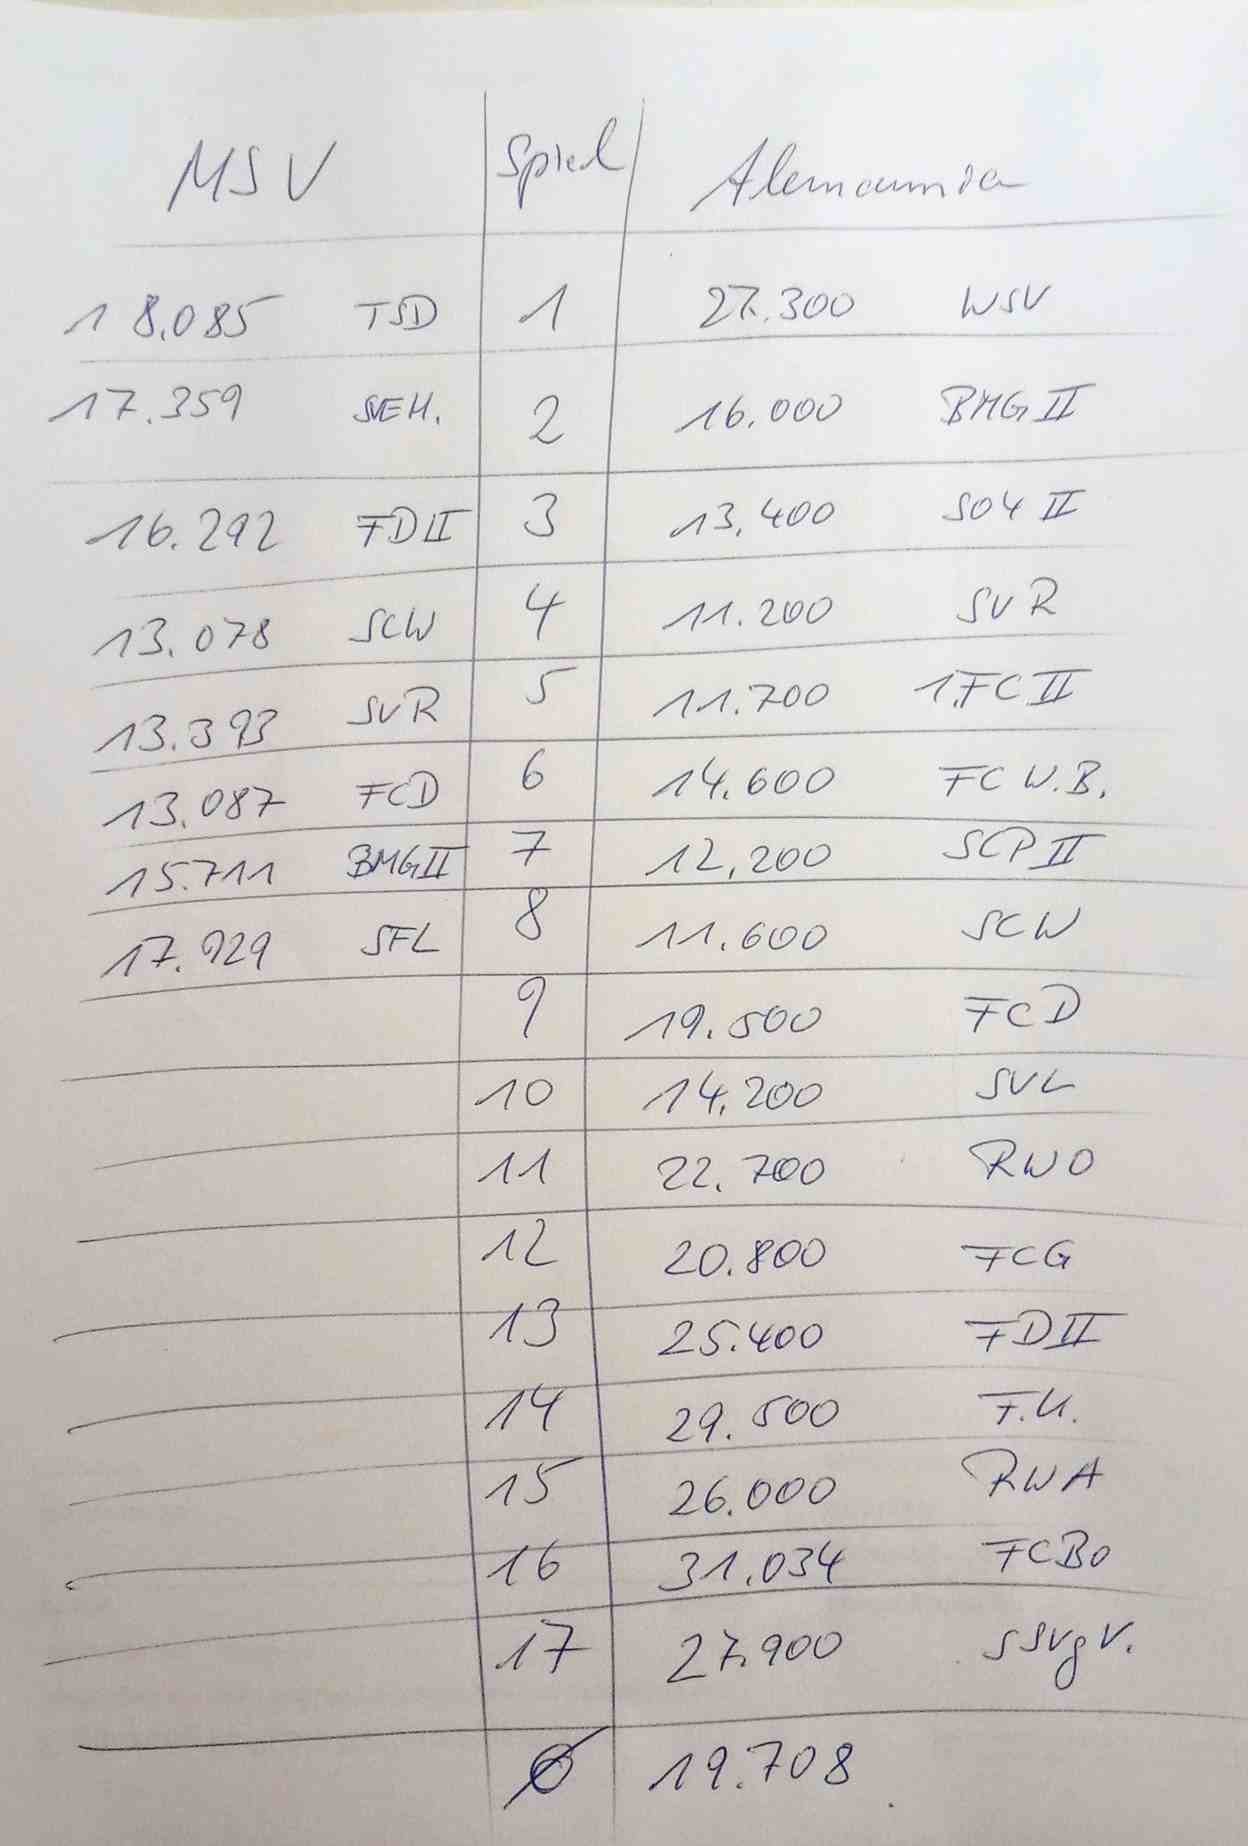 MSV Spiel Alemannia
18.085 TSD 1 27.300 WSV
17.359 SVEH. 2 16.000 BMG II
16.292 FD II 3 13.400 S04 II
13.078 SCW 4 11.200 SVR
13.393 SVR 5 11.700 1.FC II
13.087 FCD 6 14.600 FC W.B.
15.711 BMG II 7 12.200 SCP II
17.929 SFL 8 11.600 SCW
9 19.500 FCD
10 14.200 SVL
11 22.700 RWO
12 20.800 FCG
13 25.400 FD II
14 29.500 F.U.
15 26.000 RWA
16 31.034 FCBo
17 27.900 SSVg V.
Ø 19.708